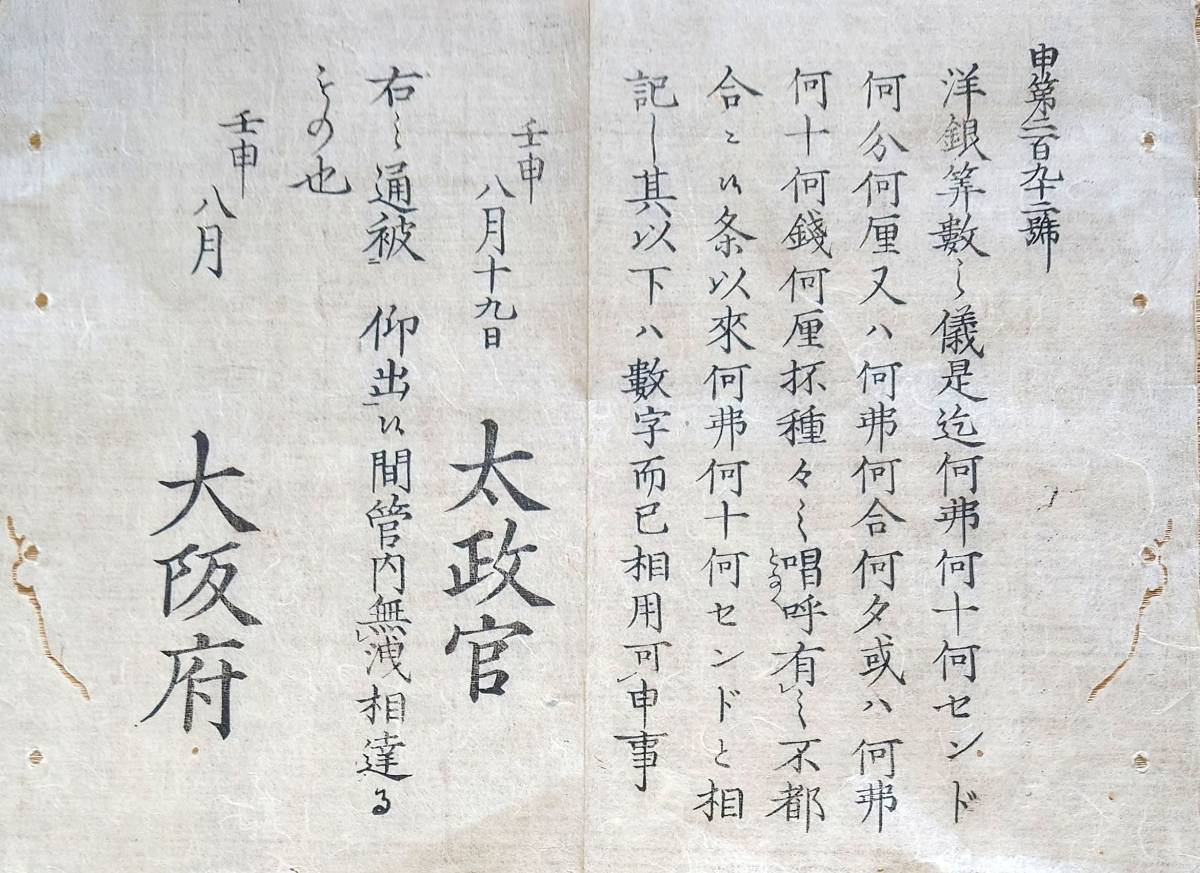 申第二百九十二號
洋銀筭數之儀是迄何弗何十何センド
何分何厘又ハ何弗何合何夕或ハ何弗
何十何錢何厘抔種々之唱呼有之不都
となへ
合ニ候条以來何弗何十何センドと相
記し其以下ハ數字而已相用可申事
壬申
八月十九日 太政官
右之通被 仰出候間管内無洩相達る
もの也
壬申
八月 大阪府